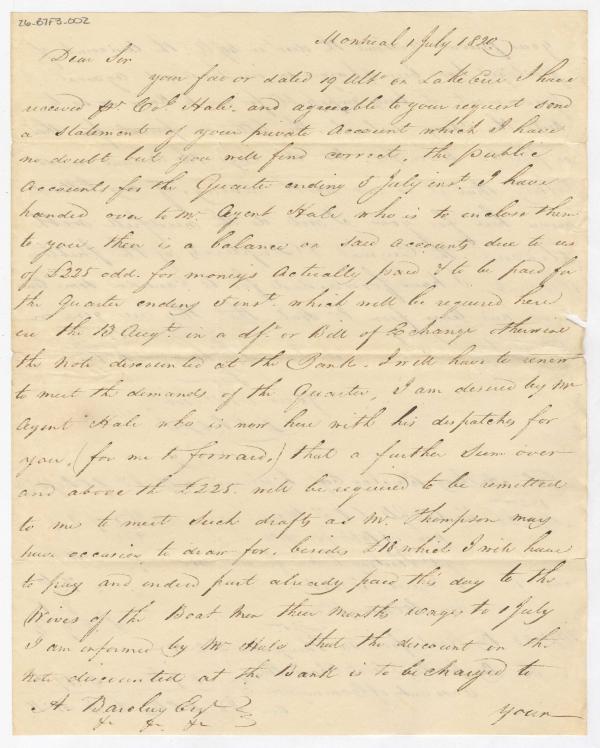 26-B7F3-002
Montreal 1 July 1820
Dear Sir
your favor dated 19 Ulto on Lake Erie I have
received pr Col. Hale. and agreeable to your request send
a statement of your private account which I have
no doubt but you will find correct. the public
accounts for the Quarter ending 5 July inst. I have
handed over to Mr. Agent Hale who is to inclose them
to you. there is a balance on said accounts due to us
of £225 odd. for moneys actually paid & to be paid for
the Quarter ending 5 inst. which will be required here
ere the 13 Augt. in a dft. or Bill of Exchange otherwise
the note discounted at the Bank. I will have to renew
to meet the demands of the Quarter, I am desired by Mr
Agent Hale who is now here with his despatches for
you, (for me to forward,) that a further sum over
and above the £225. will be required to be remitted
to me to meet such drafts as Mr. Thompson may
have occasion to draw for. besides £18 which I will have
to pay and indeed part already paid this day to the
Wives of the Boat Men their months wages to 1 July
I am informed by Mr Hale that the discount on the
note discounted at the Bank is to be charged to
A. Barclay Esqr
your